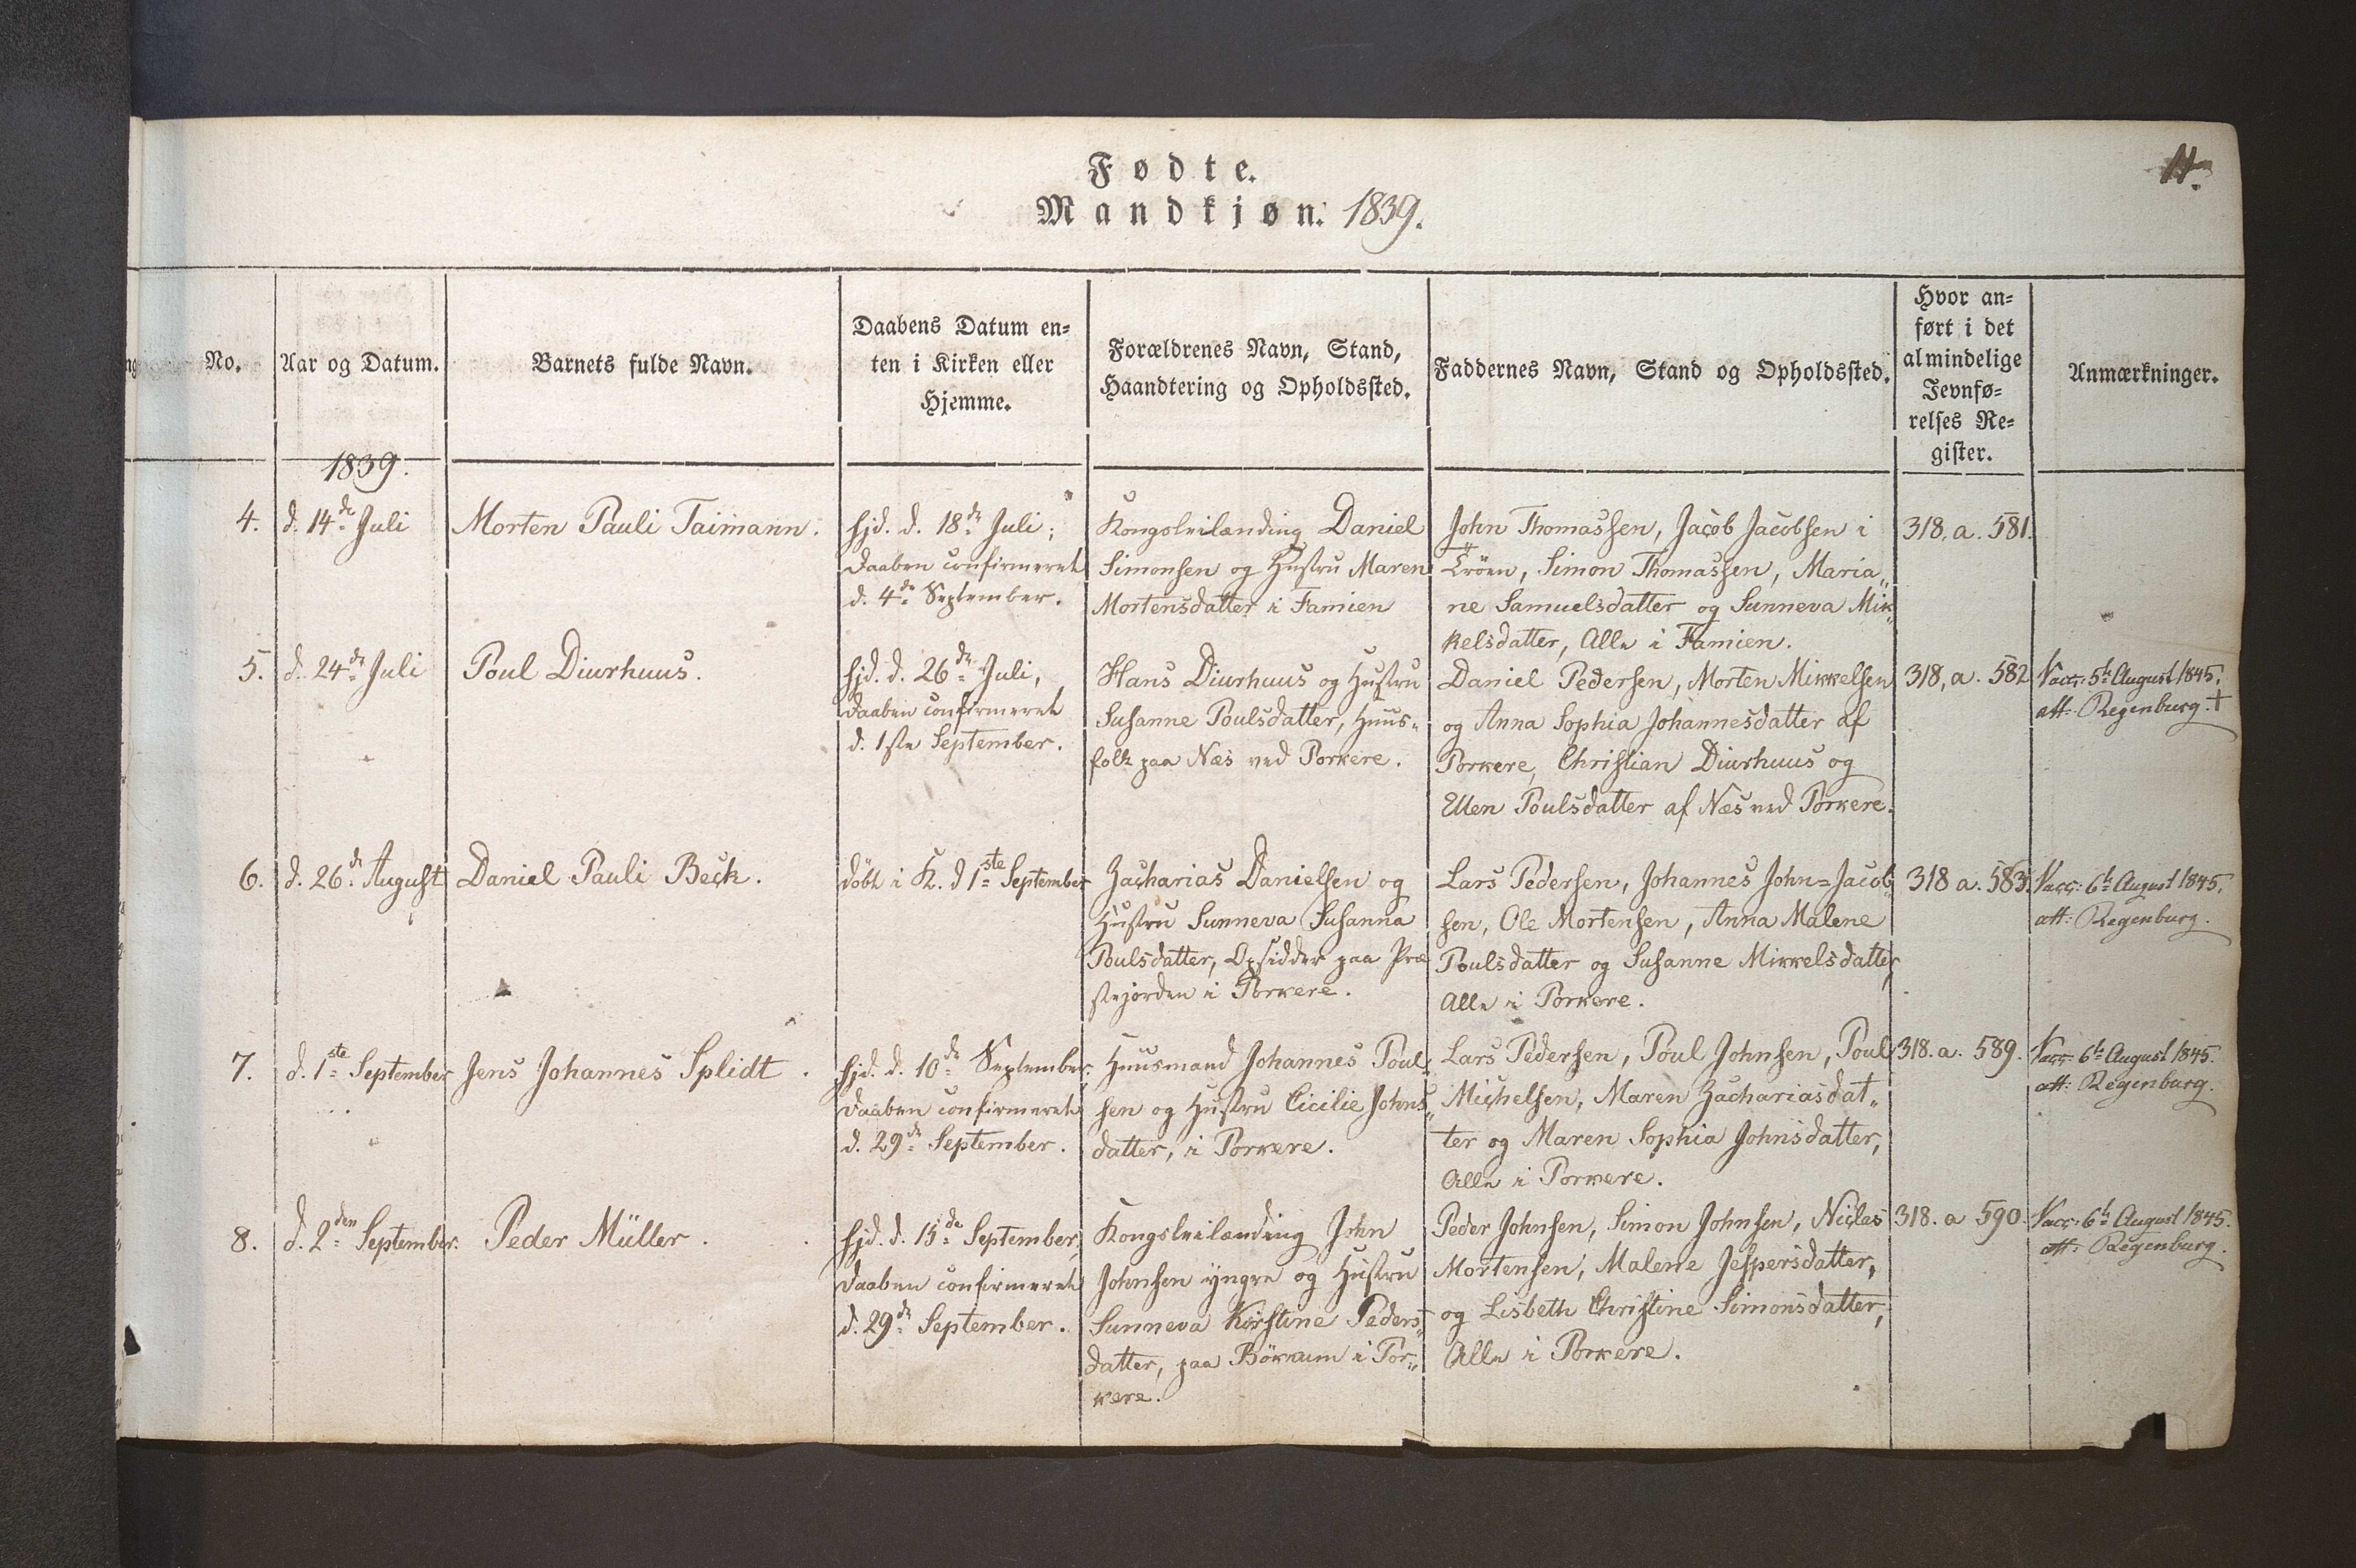 Fødte.
11.
Mandkjøn. 1839.
No.
Aar og Datum.
Barnets fulde Navn.
Daabens Datum en=
ten i Kirken eller
Hjemme.
Forældrenes Navn, Stand,
Haandtering og Opholdssted.
Faddernes Navn, Stand og Opholdssted.
Hvor an=
ført i det
almindelige
Jevnfø=
relses Re=
gister.
Anmærkninger.
1839.
4.
d. 14de Juli
Morten Pauli Taimann.
hjd. d. 18de Juli;
Daaben confirmeret
d. 4de September.
Kongsleilænding Daniel
Simonsen og Hustru Maren
Mortensdatter i Famien
John Thomassen, Jacob Jacobsen i
Tröen, Simon Thomassen, Maria„
ne Samuelsdatter og Sunneva Mik„
kelsdatter, Alle i Famien.
318, a. 581.
5.
d. 24de Juli
Poul Diurhuus.
hjd. d. 26de Juli,
Daaben confirmeret
d. 1ste September.
Hans Diurhuus og Hustru
Susanne Poulsdatter, Huus„
folk paa Næs ved Porkere.
Daniel Pedersen, Morten Mikkelsen
og Anna Sophia Johannesdatter af
Porkere, Christian Diurhuus og
Ellen Poulsdatter af Næs ved Porkere.
318, a. 582
Vacc: 5t August 1845.
att: Regenburg. †
6.
d. 26de August
Daniel Pauli Beck.
döbt i K. d 1ste September
Zacharias Danielsen og
Hustru Sunneva Susanna
Poulsdatter, Opsidder paa Præ
stejorden i Porkere.
Lars Pedersen, Johannes John=Jacob„
sen, Ole Mortensen, Anna Malene
Poulsdatter og Susanne Mikkelsdatter,
Alle i Porkere.
318 a. 583.
Vacc: 6t August 1845.
att: Regenburg.
7.
d. 1ste September
Jens Johannes Splidt.
hjd. d. 10de September.
Daaben confirmeret
d. 29de September.
Huusmand Johannes Poul„
sen og Hustru Cicilie Johns„
datter, i Porkere.
Lars Pedersen, Poul Johnsen, Poul
Michelsen, Maren Zachariasdat„
ter og Maren Sophia Johnsdatter,
Alle i Porkere.
318. a. 589.
Vacc: 6t August 1845.
att: Regenburg.
8.
d. 2den September.
Peder Müller.
hjd. d. 15de September,
Daaben confirmeret
d. 29de September.
Kongsleilænding John
Johnsen yngre og Hustru
Sunneva Kirstine Peders„
datter, paa Bökkum i Por„
kere.
Peder Johnsen, Simon Johnsen, Niclas
Mortensen, Malene Jespersdatter,
og Lisbeth Christine Simonsdatter,
Alle i Porkere.
318. a 590.
Vacc: 6t August 1845.
att: Regenburg.